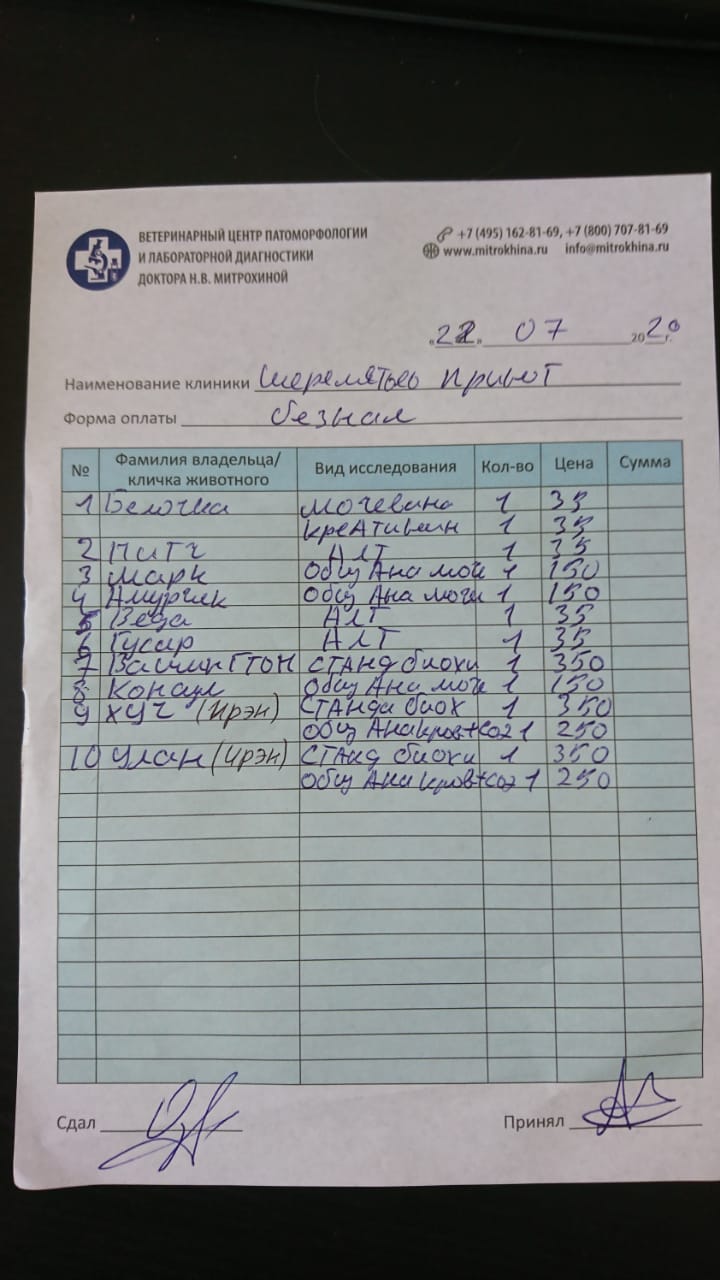 ВЕТЕРИНАРНЫЙ ЦЕНТР ПАТОМОРФОЛОГИИ
И ЛАБОРАТОРНОЙ ДИАГНОСТИКИ
ДОКТОРА Н.В. МИТРОХИНОЙ
+7 (495) 162-81-69, +7 (800) 707-81-69
www.mitrokhina.ru info@mitrokhina.ru
«22» 07 2020 г.
Наименование клиники Шереметьево приют
Форма оплаты безнал
№ Фамилия владельца/кличка животного Вид исследования Кол-во Цена Сумма
1 Белочка мочевина 1 35
креатинин 1 35
2 Питч АЛТ 1 35
3 Марк Общ Ана мочи 1 150
4 Амурчик Общ Ана мочи 1 150
5 Веда АЛТ 1 35
6 Гусар АЛТ 1 35
7 Вашингтон СТАНД биохи 1 350
8 Общ Ана мочи 1 150
9 ХУЧ (Ирэн) СТАНДа биох 1 350
Общ Ана кров+Соэ 1 250
10 Улан (Ирэн) СТАНД биохи 1 350
Общ Ана кров+Соэ 1 250
Сдал Принял